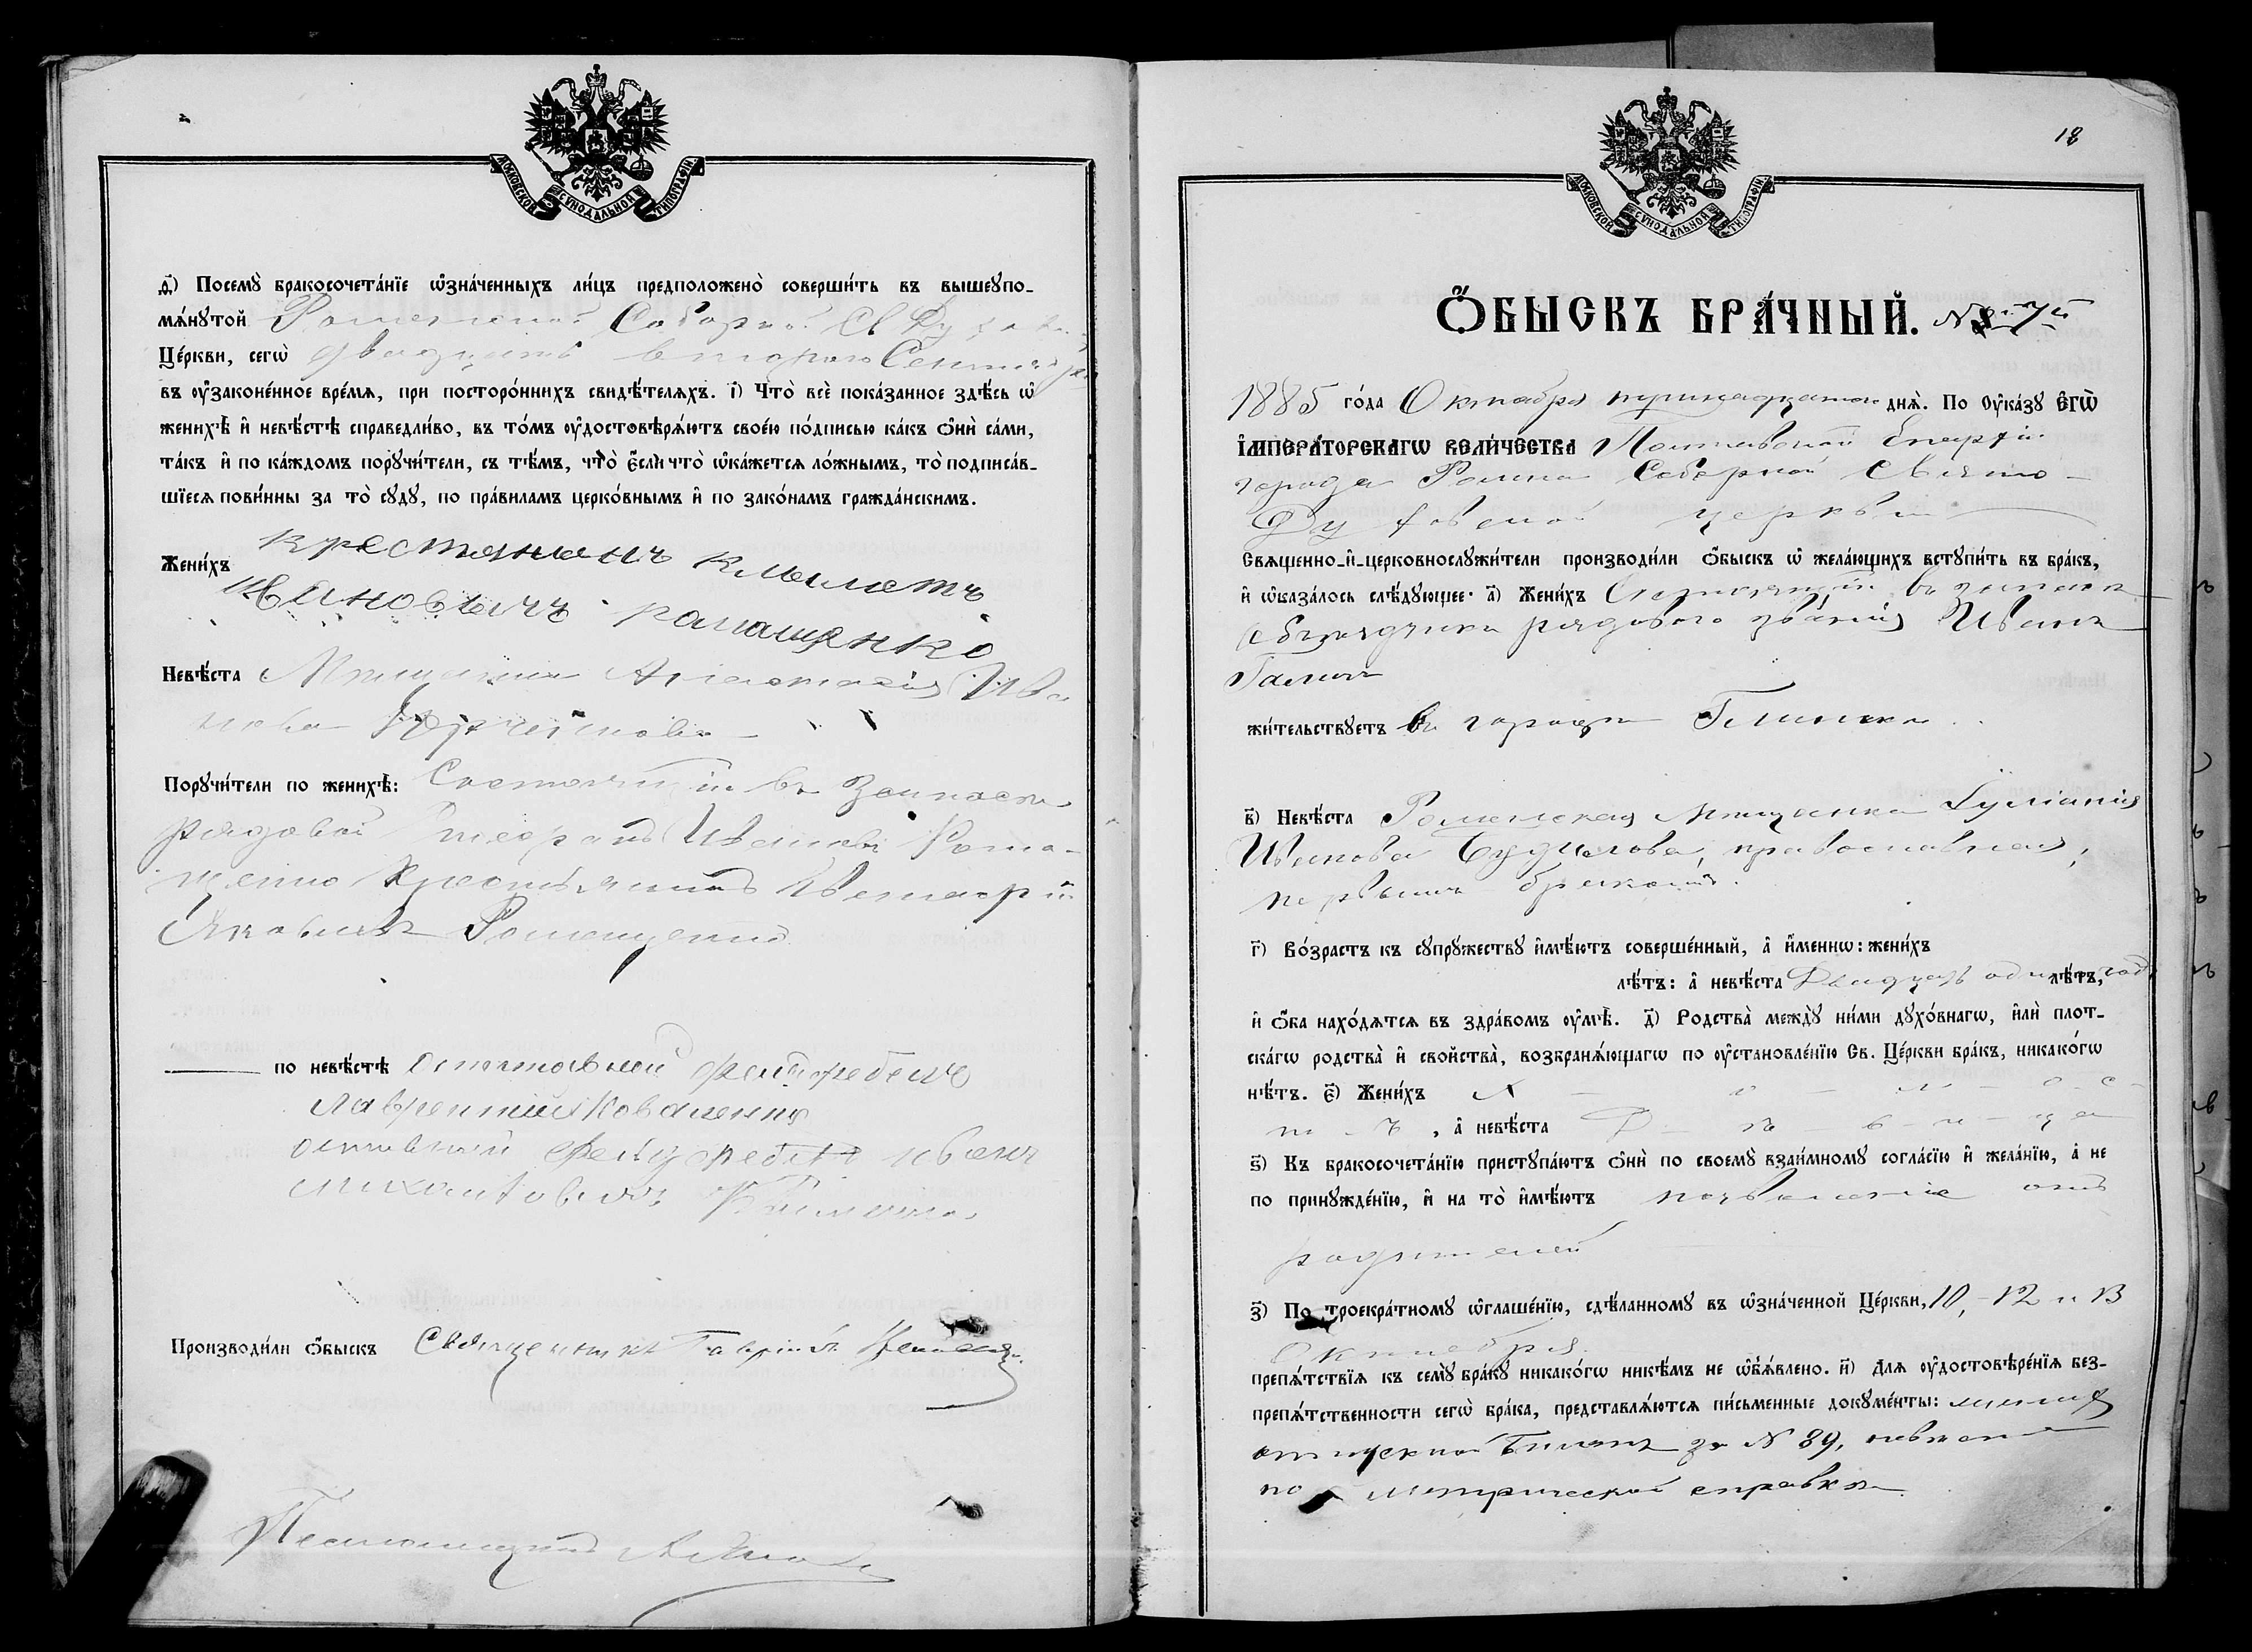 МОСКОВСКОЙ СѴНОДАЛЬНОЙ ТИПОГРАФІИ
ѳ҃) Посемꙋ̀ бракосочета́нїе ѡ҆зна́ченныхъ ли́цъ предположено̀ соверши́ть въ вышеꙋпо-
мѧ́нꙋтой Роменской Соборной Св Духов
Це́ркви, сегѡ̀ двадцать второго Сентября
въ ᲂу҆законе́нное вре́мѧ, при посторо́ннихъ свидѣ́телѧхъ. і҃) Что̀ всѐ пока́занное здѣ́сь ѡ҆
женихѣ̀ и҆ невѣ́стѣ справедли́во, въ то́мъ ᲂу҆достовѣрѧ́ютъ свое́ю по́дписью ка́къ ѻ҆нѝ са́ми,
та́къ и҆ по ка́ждомъ порꙋчи́тели, съ тѣ́мъ, что̀ є҆́сли что̀ ѡ҆ка́жетсѧ ло́жнымъ, то̀ подписа́в-
шїесѧ пови́нны за то̀ сꙋдꙋ̀, по пра́виламъ церко́внымъ и҆ по зако́намъ гражда́нскимъ.
Жени́хъ крестянинъ климетъ
ивановичъ рамащенко
Невѣ́ста Мѣщанка Анастасія Ива
нова
Порꙋчи́тели по женихѣ̀: Состоящій въ Запасѣ
Рядовой Ивановъ Рома-
щенко Крестьянинъ
Яковлевъ Ромащенко
по невѣ́стѣ отставной фельдфебель
лаврентий Коваленко
отставный фельдфебель иванъ
михайловичъ
Производи́ли ѻ҆́быскъ Священникъ Гавріилъ
Псаломщикъ
18
МОСКОВСКОЙ СѴНОДАЛЬНОЙ ТИПОГРАФІИ
Ѻ҆́БЫСКЪ БРА́ЧНЫЙ. № 7й
1885 го́да Октября тринадцатого днѧ̀. По ᲂу҆ка́зꙋ Є҆гѡ̀
И҆МПЕРА́ТОРСКАГѠ ВЕЛИ́ЧЕСТВА Полтавской Епархіи
города Ромна Соборной Свято-
Духовской церкви
Свѧщенно-и҆-церковнослꙋжи́тели производи́ли ѻ҆́быскъ ѡ҆ жела́ющихъ встꙋпи́ть въ бра́къ,
и҆ ѡ҆каза́лось слѣ́дꙋющее: а҃) Жени́хъ Состоящій въ запасѣ
рядового званія Иванъ
Галичъ
жи́тельствꙋетъ въ городѣ Глинскѣ
в҃) Невѣ́ста Роменская Мѣщанка Іуліанія
Иванова Будилова, православная,
первымъ бракомъ.
г҃) Во́зрастъ къ сꙋпрꙋ́жествꙋ и҆мѣ́ютъ соверше́нный, а҆ и҆́меннѡ: жени́хъ
лѣ́тъ: а҆ невѣ́ста Двадцать одинъ лѣ́тъ, годъ
и҆ ѻ҆́ба нахо́дѧтсѧ въ здра́вомъ ᲂу҆мѣ̀. д҃) Родства̀ междꙋ̀ ни́ми дꙋхо́внагѡ, и҆лѝ плот-
ска́гѡ родства̀ и҆ сво́йства̀, возбранѧ́ющагѡ по ᲂу҆становле́нїю Св. Це́ркви бра́къ, никако́гѡ
нѣ́тъ. є҃) Жени́хъ Х - о - л - о - с -
т - ъ, а҆ невѣ́ста Д - ѣ - в - и - ца
ѕ҃) Къ бракосочета́нїю пристꙋпа́ютъ ѻ҆нѝ по своемꙋ̀ взаи́мномꙋ согла́сїю и҆ жела́нїю, а҆ не
по принꙋжде́нїю, и҆ на то̀ и҆мѣ́ютъ позволеніе отъ
родителей
з҃) По троекра́тномꙋ ѡ҆глаше́нїю, сдѣ́ланномꙋ въ ѡ҆зна́ченной Це́ркви, 10, 12 и 13
Октября
препѧ́тствїѧ къ семꙋ̀ бра́кꙋ никако́гѡ никѣ́мъ не ѡ҆б̾ѧ́влено. и҃) Длѧ ᲂу҆достовѣре́нїѧ без-
препѧ́тственности сегѡ̀ бра́ка, представлѧ́ютсѧ пи́сьменные докꙋме́нты: жениха
отпускной билетъ за № 89, невѣста
по метрической справкѣ